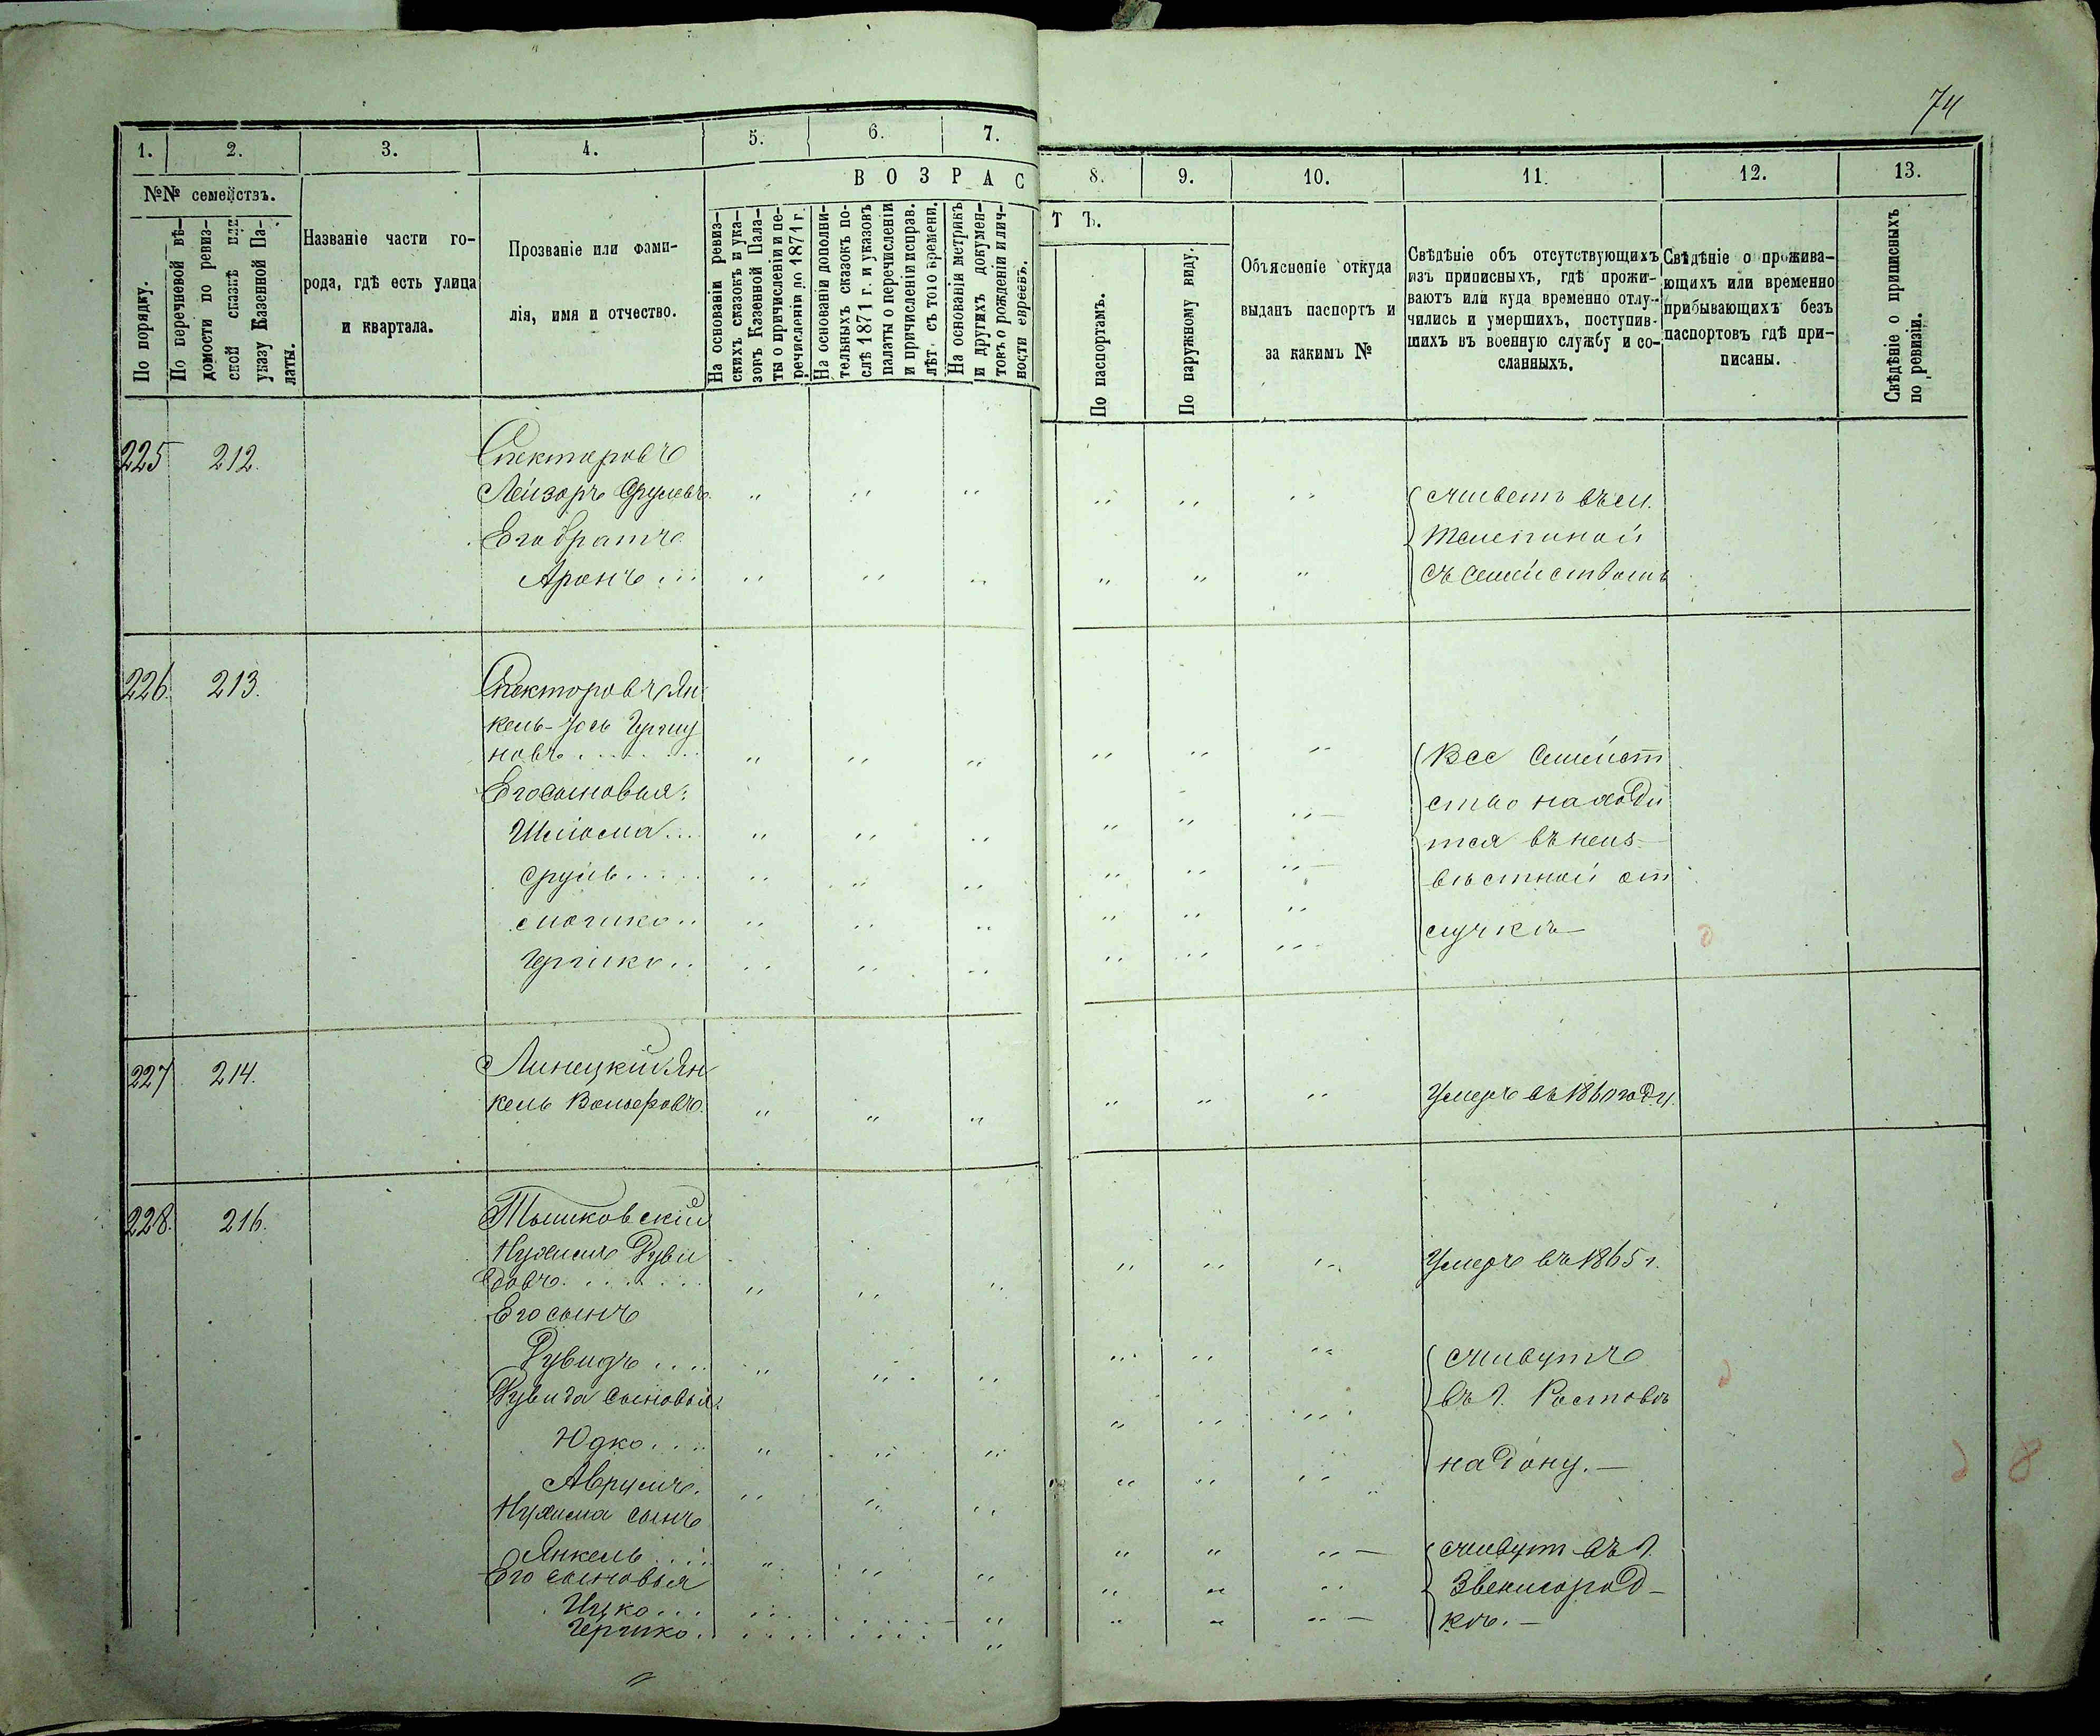 74
1. 2. 3. 4. 5. 6. 7. 8. 9. 10. 11. 12. 13.
№№ семействъ.
По порядку.
По перечневой вѣ-
домости по ревиз-
ской сказкѣ или
указу Казенной Па-
латы.
Названіе части го-
рода, гдѣ есть улица
и квартала.
Прозваніе или фами-
лія, имя и отчество.
ВОЗРАСТЪ.
На основаніи ревиз-
скихъ сказокъ и ука-
зовъ Казенной Пала-
ты о причисленіи и пе-
речисленіи до 1871 г.
На основаніи дополни-
тельныхъ сказокъ по-
слѣ 1871 г. и указовъ
палаты о перечисленіи
и причисленіи исправ.
лѣт. съ того времени.
На основаніи метрикъ
и другихъ докумен-
товъ о рожденіи и лич-
ности евреевъ.
По паспортамъ.
По наружному виду.
Объясненіе откуда
выданъ паспортъ и
за какимъ №
Свѣдѣніе объ отсутствующихъ
изъ приписныхъ, гдѣ прожи-
ваютъ или куда временно отлу-
чились и умершихъ, поступив-
шихъ въ военную службу и со-
сланныхъ.
Свѣдѣніе о прожива-
ющихъ или временно
прибывающихъ безъ
паспортовъ гдѣ при-
писаны.
Свѣдѣніе о приписныхъ
по ревизіи.
225 212. Спекторовъ
Лейзоръ Срулевъ. живетъ въ м.
Его братъ
Аронъ... съ семействомъ
226. 213. Спекторовъ Ян
кель-Іось Герш
новъ....... Все Семейст
Его сыновья: ство находи
Шліома.... тся въ неиз-
Сруль..... вѣстной от
Мошко.. лучкѣ
Гершко..
227. 214. Линецкій Ян
кель Вольфовъ. Умеръ въ 1860 году.
228. 216. Тышковскій
Нухимъ Руви
довъ....... Умеръ въ 1865 г.
Его сынъ
Рувидъ.... живутъ
Рувида сыновья: въ г. Ростовѣ
Юдко.... на Дону.—
Аврумъ.
Нухима сынъ
Янкель.... живут въ г.
Его сыновья Звенигород-
Ицко... кѣ.—
Гершко.